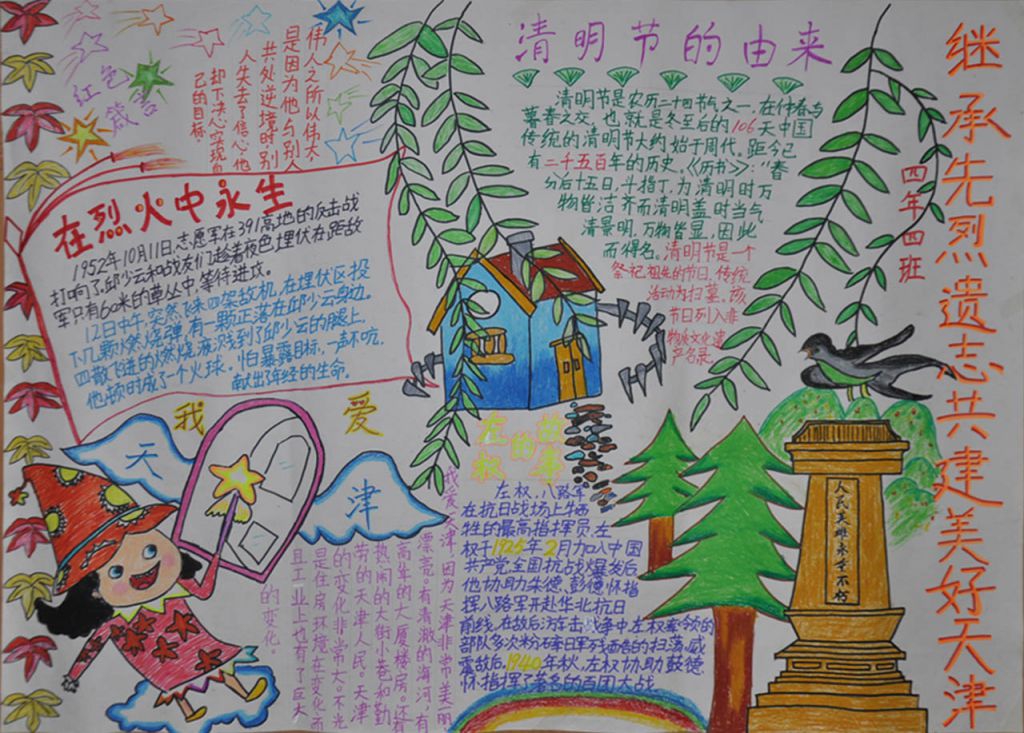 继承先烈遗志共建美好天津
四年四班
清明节的由来
清明节是农历二十四节气之一,在仲春与
暮春之交,也就是冬至后的106天中国
传统的清明节大约始于周代,距今已
有二千五百年的历史。《历书》:“春
分后十五日,斗指丁,为清明时万
物皆洁齐而清明盖时当气
清景明,万物皆显,因此
而得名。清明节是一个
祭祀祖先的节日,传统
活动为扫墓。该
节日列入非
物质文化遗
产名录。
红色
箴言
伟人之所以伟大
是因为他与别人
共处逆境时别
人失去了信心,他
却下决心实现自
己的目标。
在烈火中永生
1952年10月11日,志愿军在391高地的反击战
打响了,邱少云和战友们趁着夜色埋伏在距敌
军只有60米的草丛中,等待进攻。
12日中午,突然飞来四架敌机,在埋伏区投
下几颗燃烧弹,有一颗正落在邱少云身边。
四散飞迸的燃烧液溅到了邱少云的腿上,
他顿时成了一个火球。怕暴露目标,一声不吭,
献出了年轻的生命。
我爱
天津
我爱天津,因为天津非常美丽
漂亮。有清澈的海河,有
高耸的大厦楼房。还有
热闹的大街小巷和勤
劳的天津人民。天津
的变化非常大。不光
是住房环境在变化而
且工业上也有了巨大
的变化。
左权的故事
左权,八路军
在抗日战场上牺
牲的最高指挥员,左
权于1925年2月加入中国
共产党,全国抗战爆发后
他协助朱德、彭德怀指
挥八路军开赴华北抗日
前线,在敌后游击战争中左权率领的
部队多次粉碎日军残酷的扫荡,威
震敌后,1940年秋,左权协助彭德
怀指挥了著名的百团大战
人民英雄永垂不朽